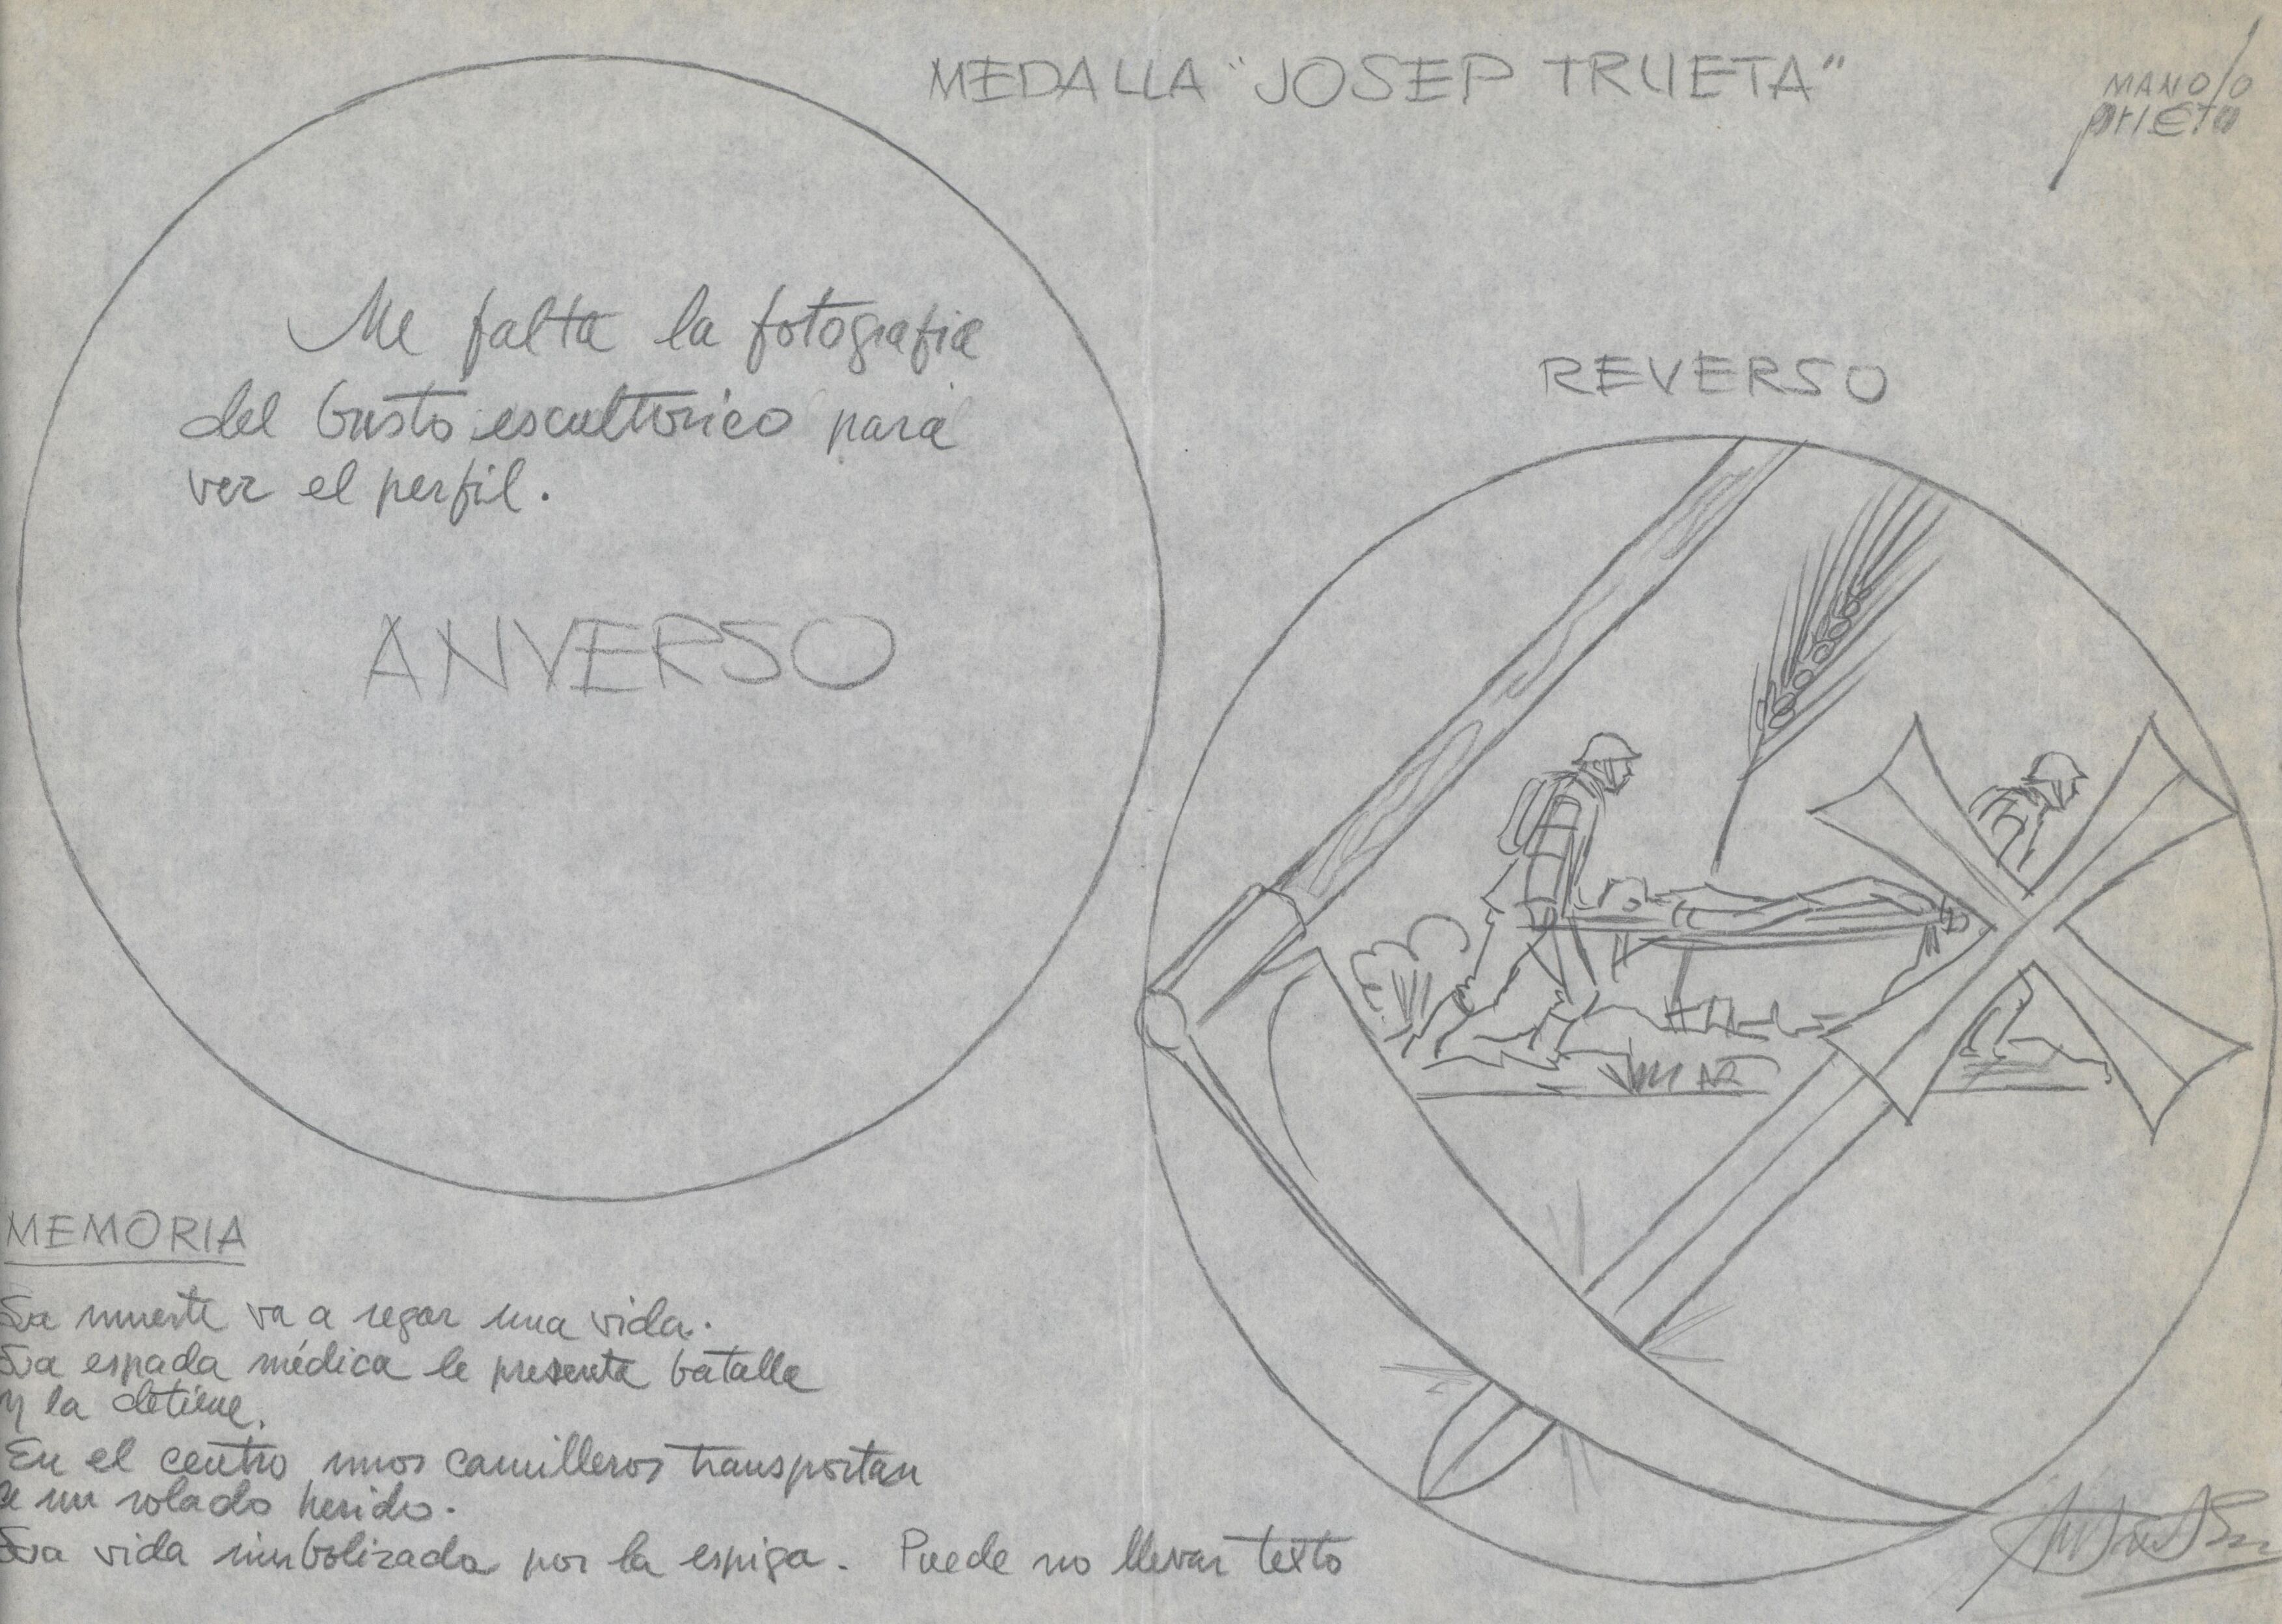 MEDALLA "JOSEP TRUETA"
MANOLO
prieto
Me falta la fotografia
del busto escultorico para
ver el perfil.
ANVERSO
REVERSO
MEMORIA
La muerte va a segar una vida.
La espada médica le presenta batalla
y la detiene.
En el centro unos camilleros transportan
a un solado herido.
La vida simbolizada por la espiga. Puede no llevar texto